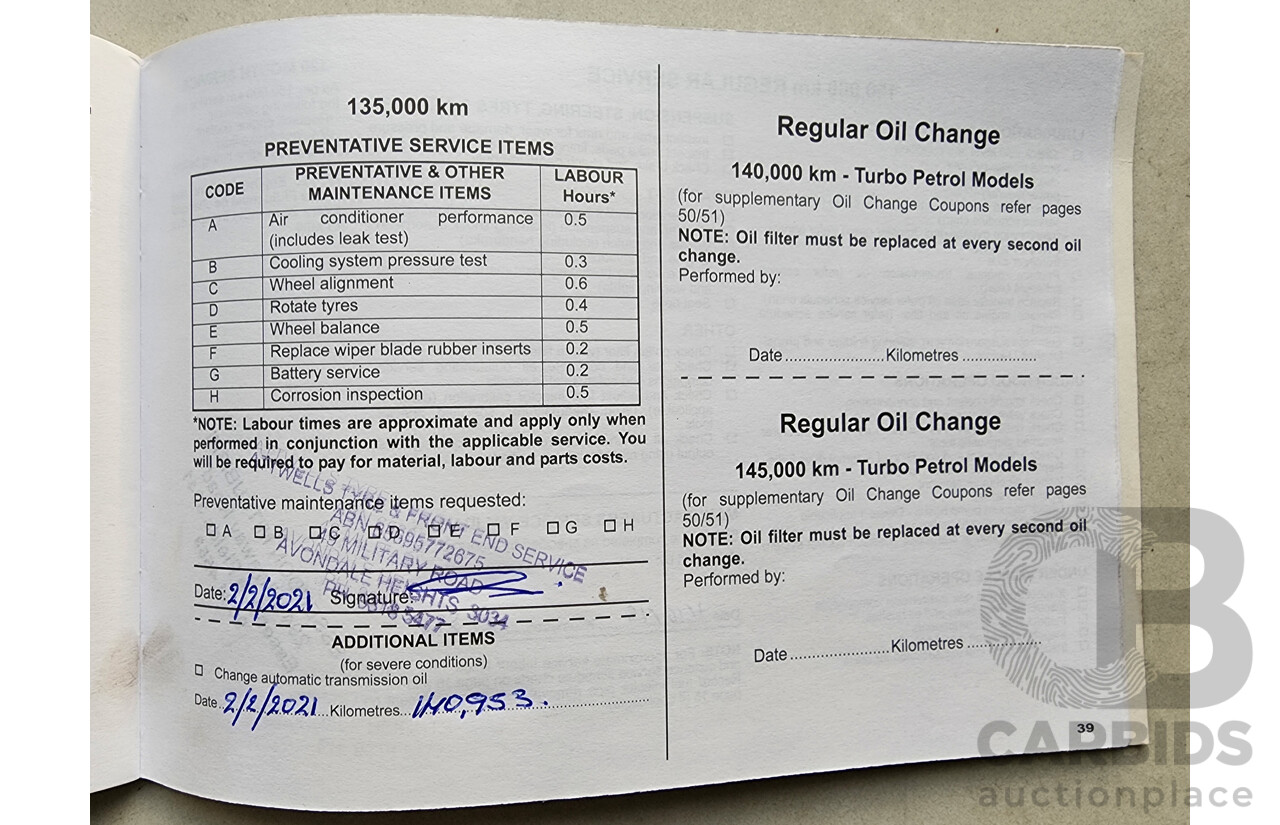 135,000 km
PREVENTATIVE SERVICE ITEMS
CODE PREVENTATIVE & OTHER MAINTENANCE ITEMS LABOUR Hours*
A Air conditioner performance (includes leak test) 0.5
B Cooling system pressure test 0.3
C Wheel alignment 0.6
D Rotate tyres 0.4
E Wheel balance 0.5
F Replace wiper blade rubber inserts 0.2
G Battery service 0.2
H Corrosion inspection 0.5
*NOTE: Labour times are approximate and apply only when
performed in conjunction with the applicable service. You
will be required to pay for material, labour and parts costs.
Preventative maintenance items requested:
A B C D E F G H
TYRE & FRONT END SERVICE
ABN
MILITARY ROAD
AVONDALE HEIGHTS 3034
PH.
Date: 2/2/2021 Signature:
ADDITIONAL ITEMS
(for severe conditions)
Change automatic transmission oil
Date..2/2/2021...Kilometres...140,953.
Regular Oil Change
140,000 km - Turbo Petrol Models
(for supplementary Oil Change Coupons refer pages
50/51)
NOTE: Oil filter must be replaced at every second oil
change.
Performed by:
Date.......................Kilometres.................
Regular Oil Change
145,000 km - Turbo Petrol Models
(for supplementary Oil Change Coupons refer pages
50/51)
NOTE: Oil filter must be replaced at every second oil
change.
Performed by:
Date.......................Kilometres.................
39
CB
CARBIDS
auctionplace